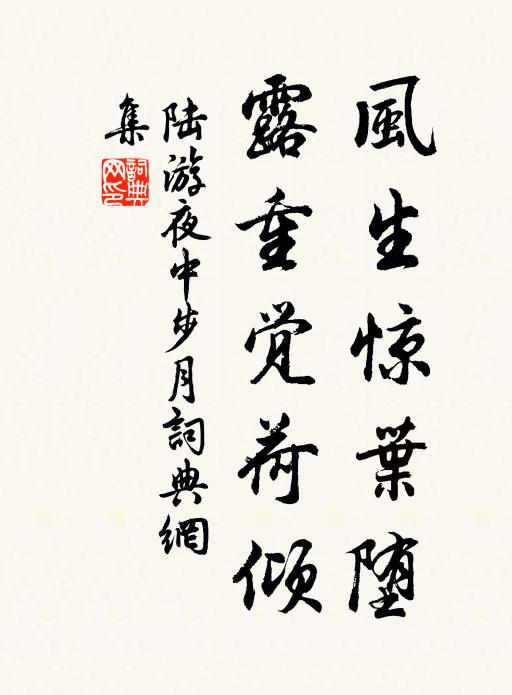 風生惊葉堕
露重觉荷倾
陆游夜中步月詞典網
集
詞典
网印